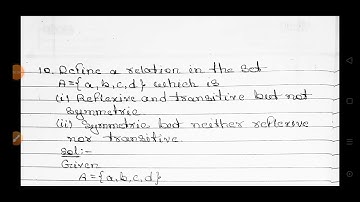 10. Define a relation in the set
A={a,b,c,d} which is
(i) Reflexive and transitive but not
symmetric.
(ii) Symmetric but neither reflexive
nor transitive.
Sol:-
Given
A={a,b,c,d}